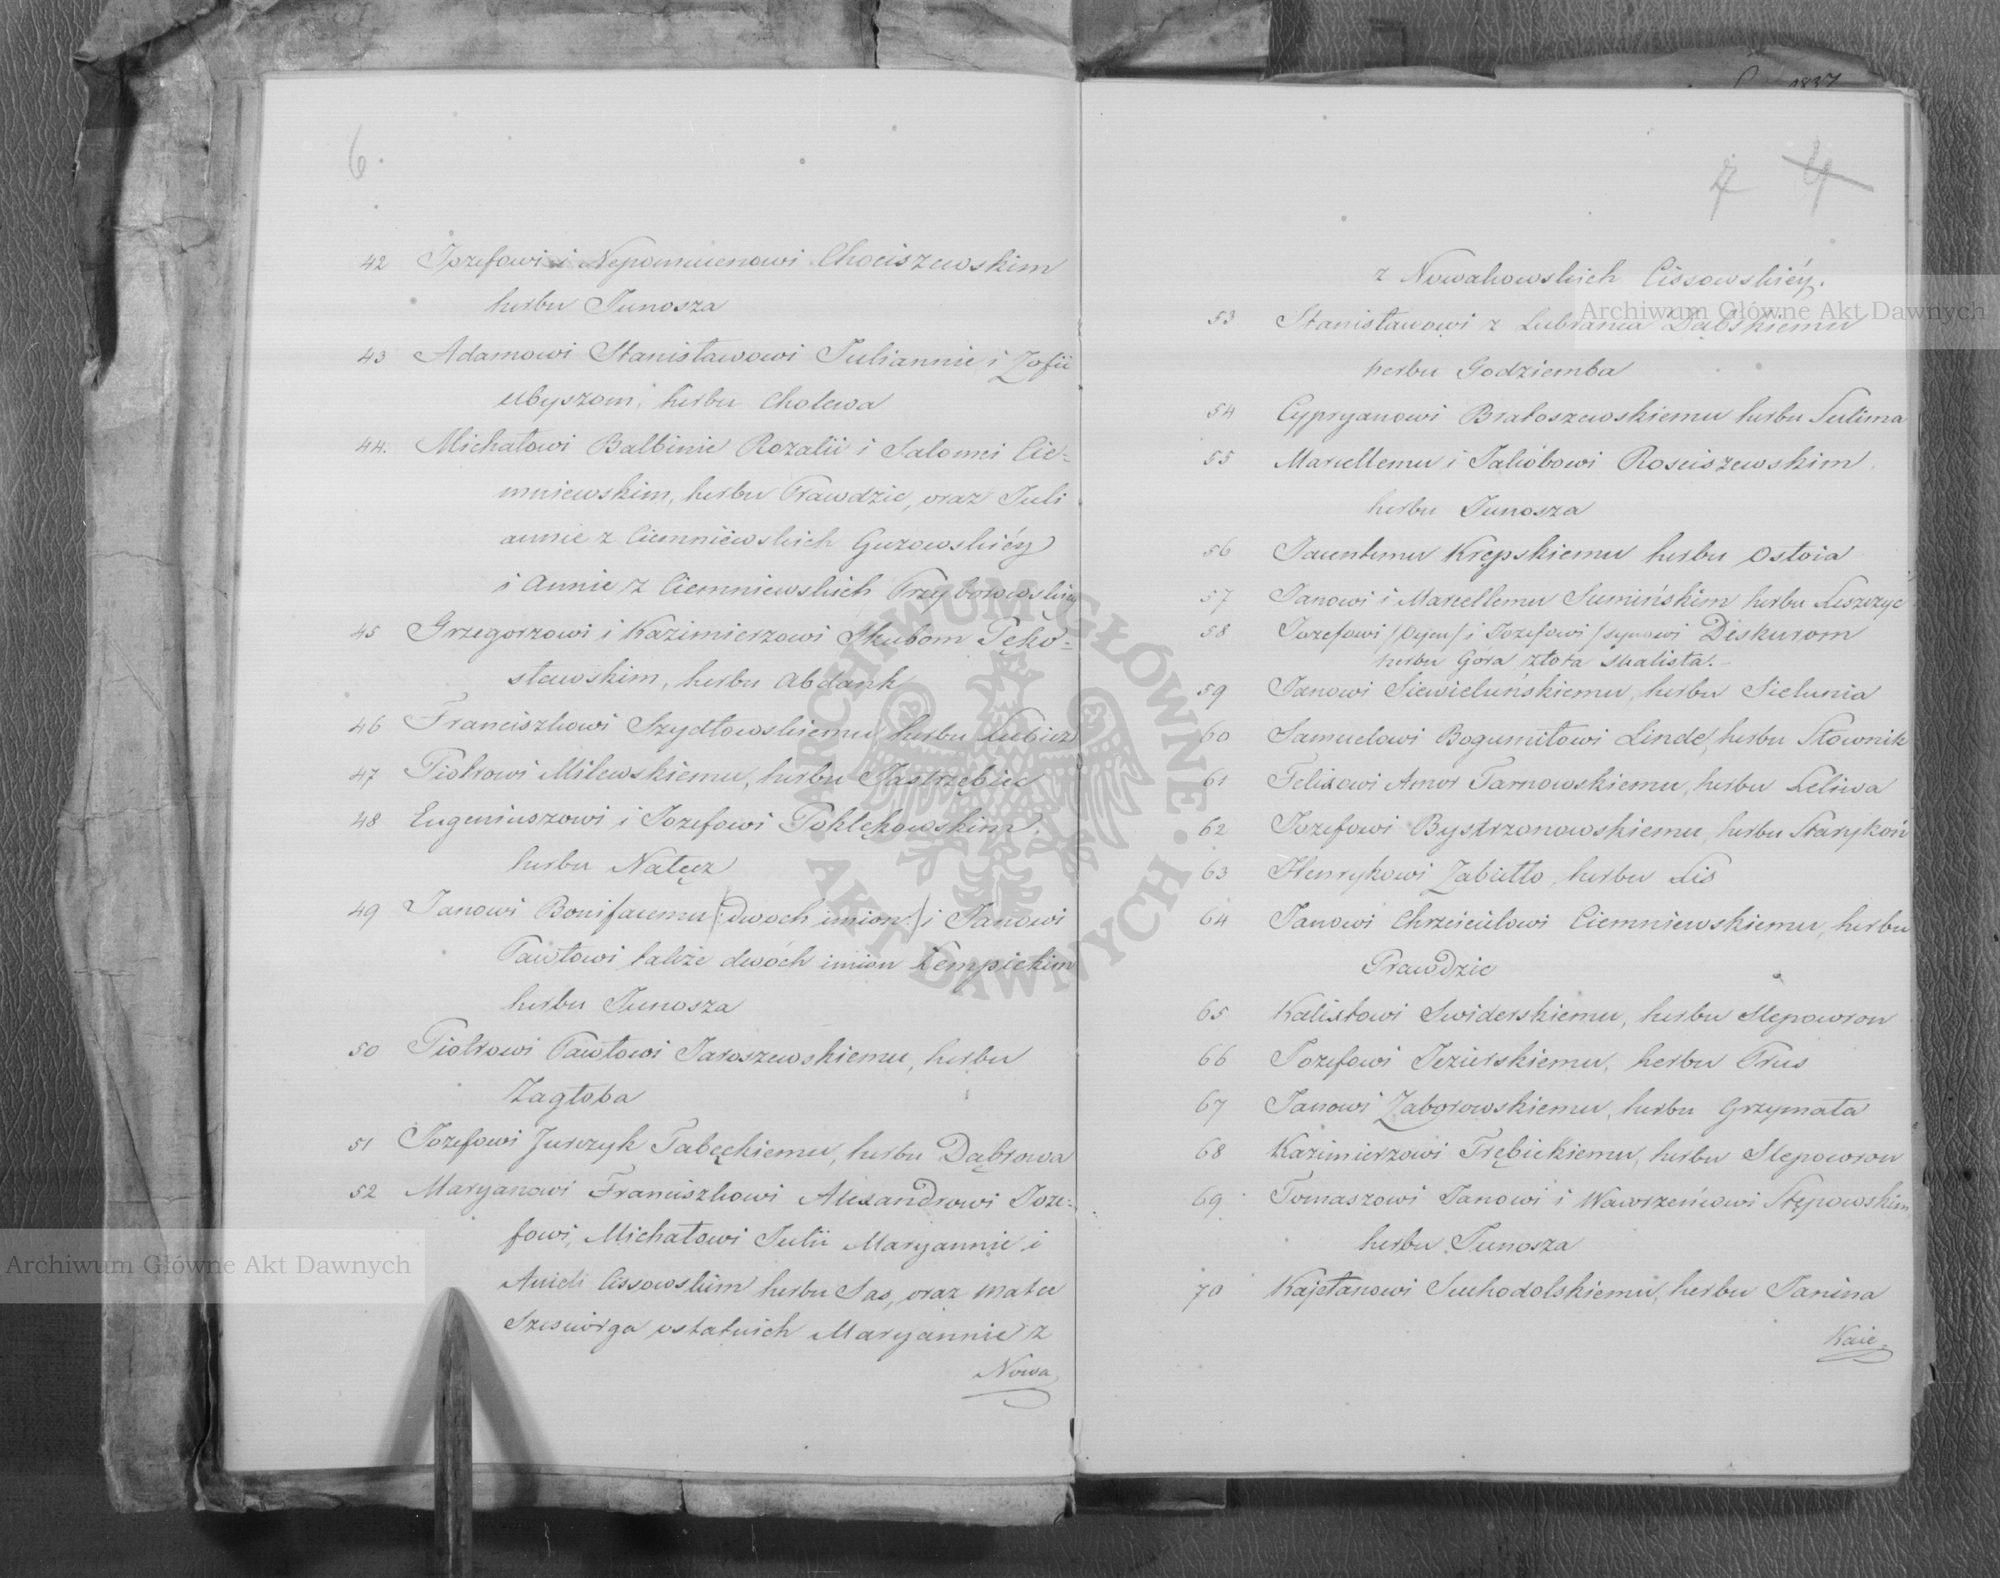 6.
42 Jozefowi i Nepomucenowi Chociszewskim
herbu Junosza
43 Adamowi Stanisławowi Juliannie i Zofii
Ubyszom, herbu Cholewa
44. Michałowi Balbinie Rozalii i Salomei Cie-
mniewskim, herbu Prawdzic, oraz Juli
annie z Ciemniewskich Guzowskiéy
i Annie z Ciemniewskich Przyborowskiey
45 Grzegorzowi i Kazimierzowi Skubom Pęko-
sławskim, herbu Abdank
46 Franciszkowi Szydłowskiemu herbu Lubicz
47 Piotrowi Milewskiemu, herbu Jastrzębiec
48 Eugeniuszowi i Jozefowi Poklękowskim
herbu Nałęcz
49 Janowi Bonifacemu (: dwoch imion :) i Janowi
Pawłowi także dwóch imion Kempickim
herbu Junosza
50 Piotrowi Pawłowi Jaroszewskiemu, herbu
Zagłoba
51 Jozefowi Jurczyk Tabęckiemu, herbu Dąbrowa
52 Maryanowi Franciszkowi Alexandrowi Joze-
fowi, Michałowi Julii Maryannie i
Anieli Cissowskim herbu Sas, oraz Matce
Sześciorga ostatnich Maryannie z
Nowa
1837
7 4
z Nowakowskich Cissowskiéy.
53 Stanisławowi z Lubrańca Dąbskiemu
herbu Godziemba
54 Cypryanowi Bratoszewskiemu herbu Sulima
55 Marcellemu i Jakóbowi Rosciszewskim
herbu Junosza
56 Jacentemu Krępskiemu herbu Ostoia
57 Janowi i Marcellemu Sumińskim herbu Leszczyc
58 Jozefowi /Oycu/ i Jozefowi /synowi Diskurom
herbu Góra złota skalista.
59 Janowi Siewieluńskiemu, herbu Sielunia
60 Samuelowi Bogumiłowi Linde, herbu Słownik
61 Felixowi Amor Tarnowskiemu, herbu Leliwa
62 Jozefowi Bystrzonowskiemu, herbu Starykoń
63 Henrykowi Zabiełło, herbu Lis
64 Janowi Chrzcicielowi Ciemniewskiemu, herbu
Prawdzic
65 Kalixtowi Swiderskiemu, herbu Slepowron
66 Jozefowi Jezierskiemu, herbu Prus
67 Janowi Zaborowskiemu, herbu Grzymała
68 Kazimierzowi Trębickiemu, herbu Slepowron
69 Tomaszowi Janowi i Wawrzeńcowi Stępowskim
herbu Junosza
70 Kajetanowi Suchodolskiemu, herbu Janina
Kaie
Archiwum Główne Akt Dawnych
Archiwum Główne Akt Dawnych
ARCHIWUM GŁÓWNE AKT DAWNYCH